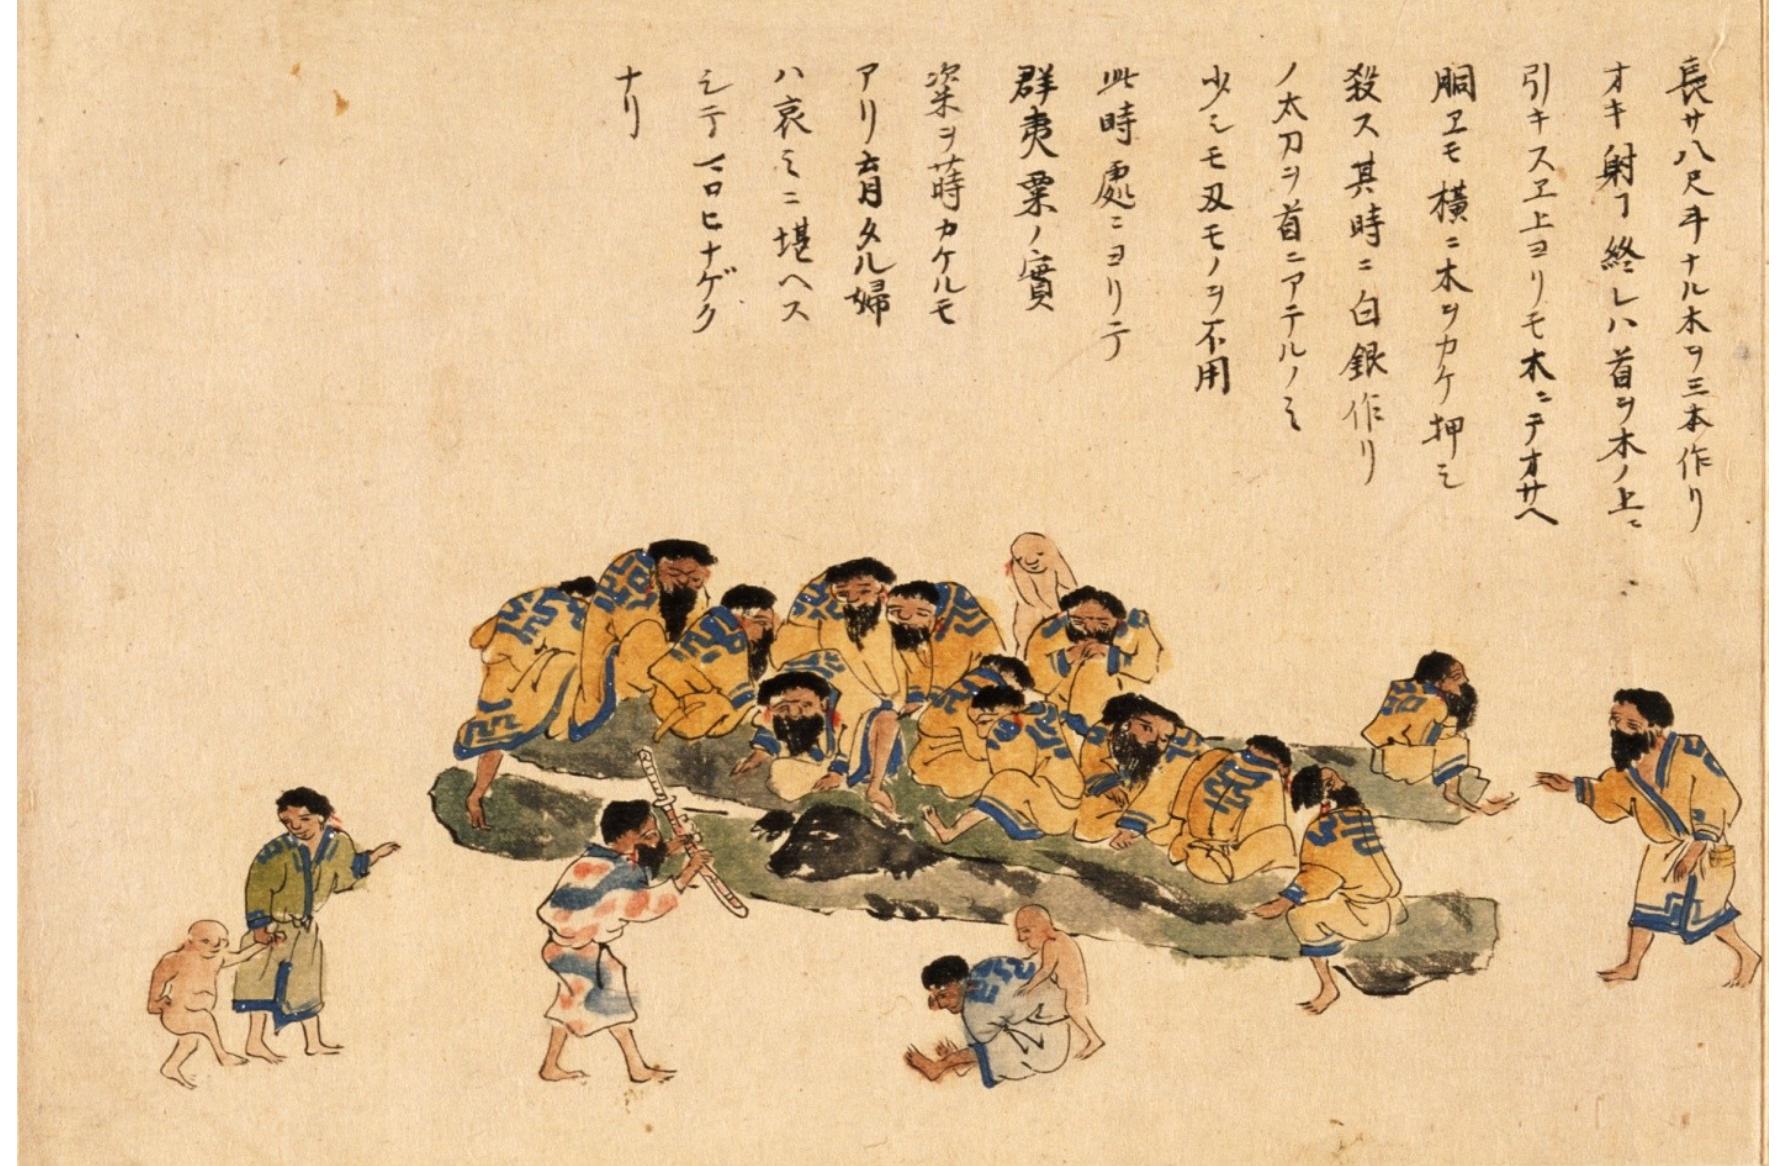 長サ八尺斗ナル木ヲ三本作リ
オキ射ヿ終レハ首ヲ木ノ上ニ
引キスヱ上ヨリモ木ニテオサヘ
胴ヱモ横ニ木ヲカケ押シ
殺ス其時ニ白銀作リ
ノ太刀ヲ首ニアテルノミ
少シモ刄モノヲ不用
此時處ニヨリテ
群夷粟ノ實
粢ヲ蒔カケルモ
アリ育タル婦
ハ哀ミニ堪ヘス
シテマロヒナゲク
ナリ